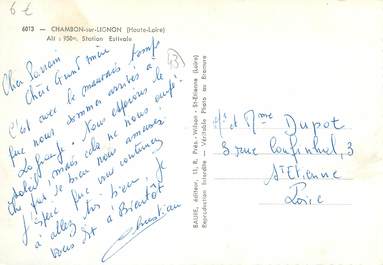 6€
6013 - CHAMBON-sur-LIGNON (Haute-Loire)
Alt : 950m. Station Estivale
43
Cher Parrain
Chère Grand'mère
C'est avec le mauvais temps
que nous sommes arrivés à
Lo. Nous espérons le
soleil ! mais cela ne nous
pas de bien nous amuser.
J'espère que vous continuez
à allez très bien. Je
vous dit à Bientôt
Christian
BAUDE, éditeur, 11, R. Prés.-Wilson - St-Étienne (Loire)
Reproduction Interdite — Véritable Photo au Bromure
Mr et Mme Dupot
3 rue 3
St Etienne
Loire